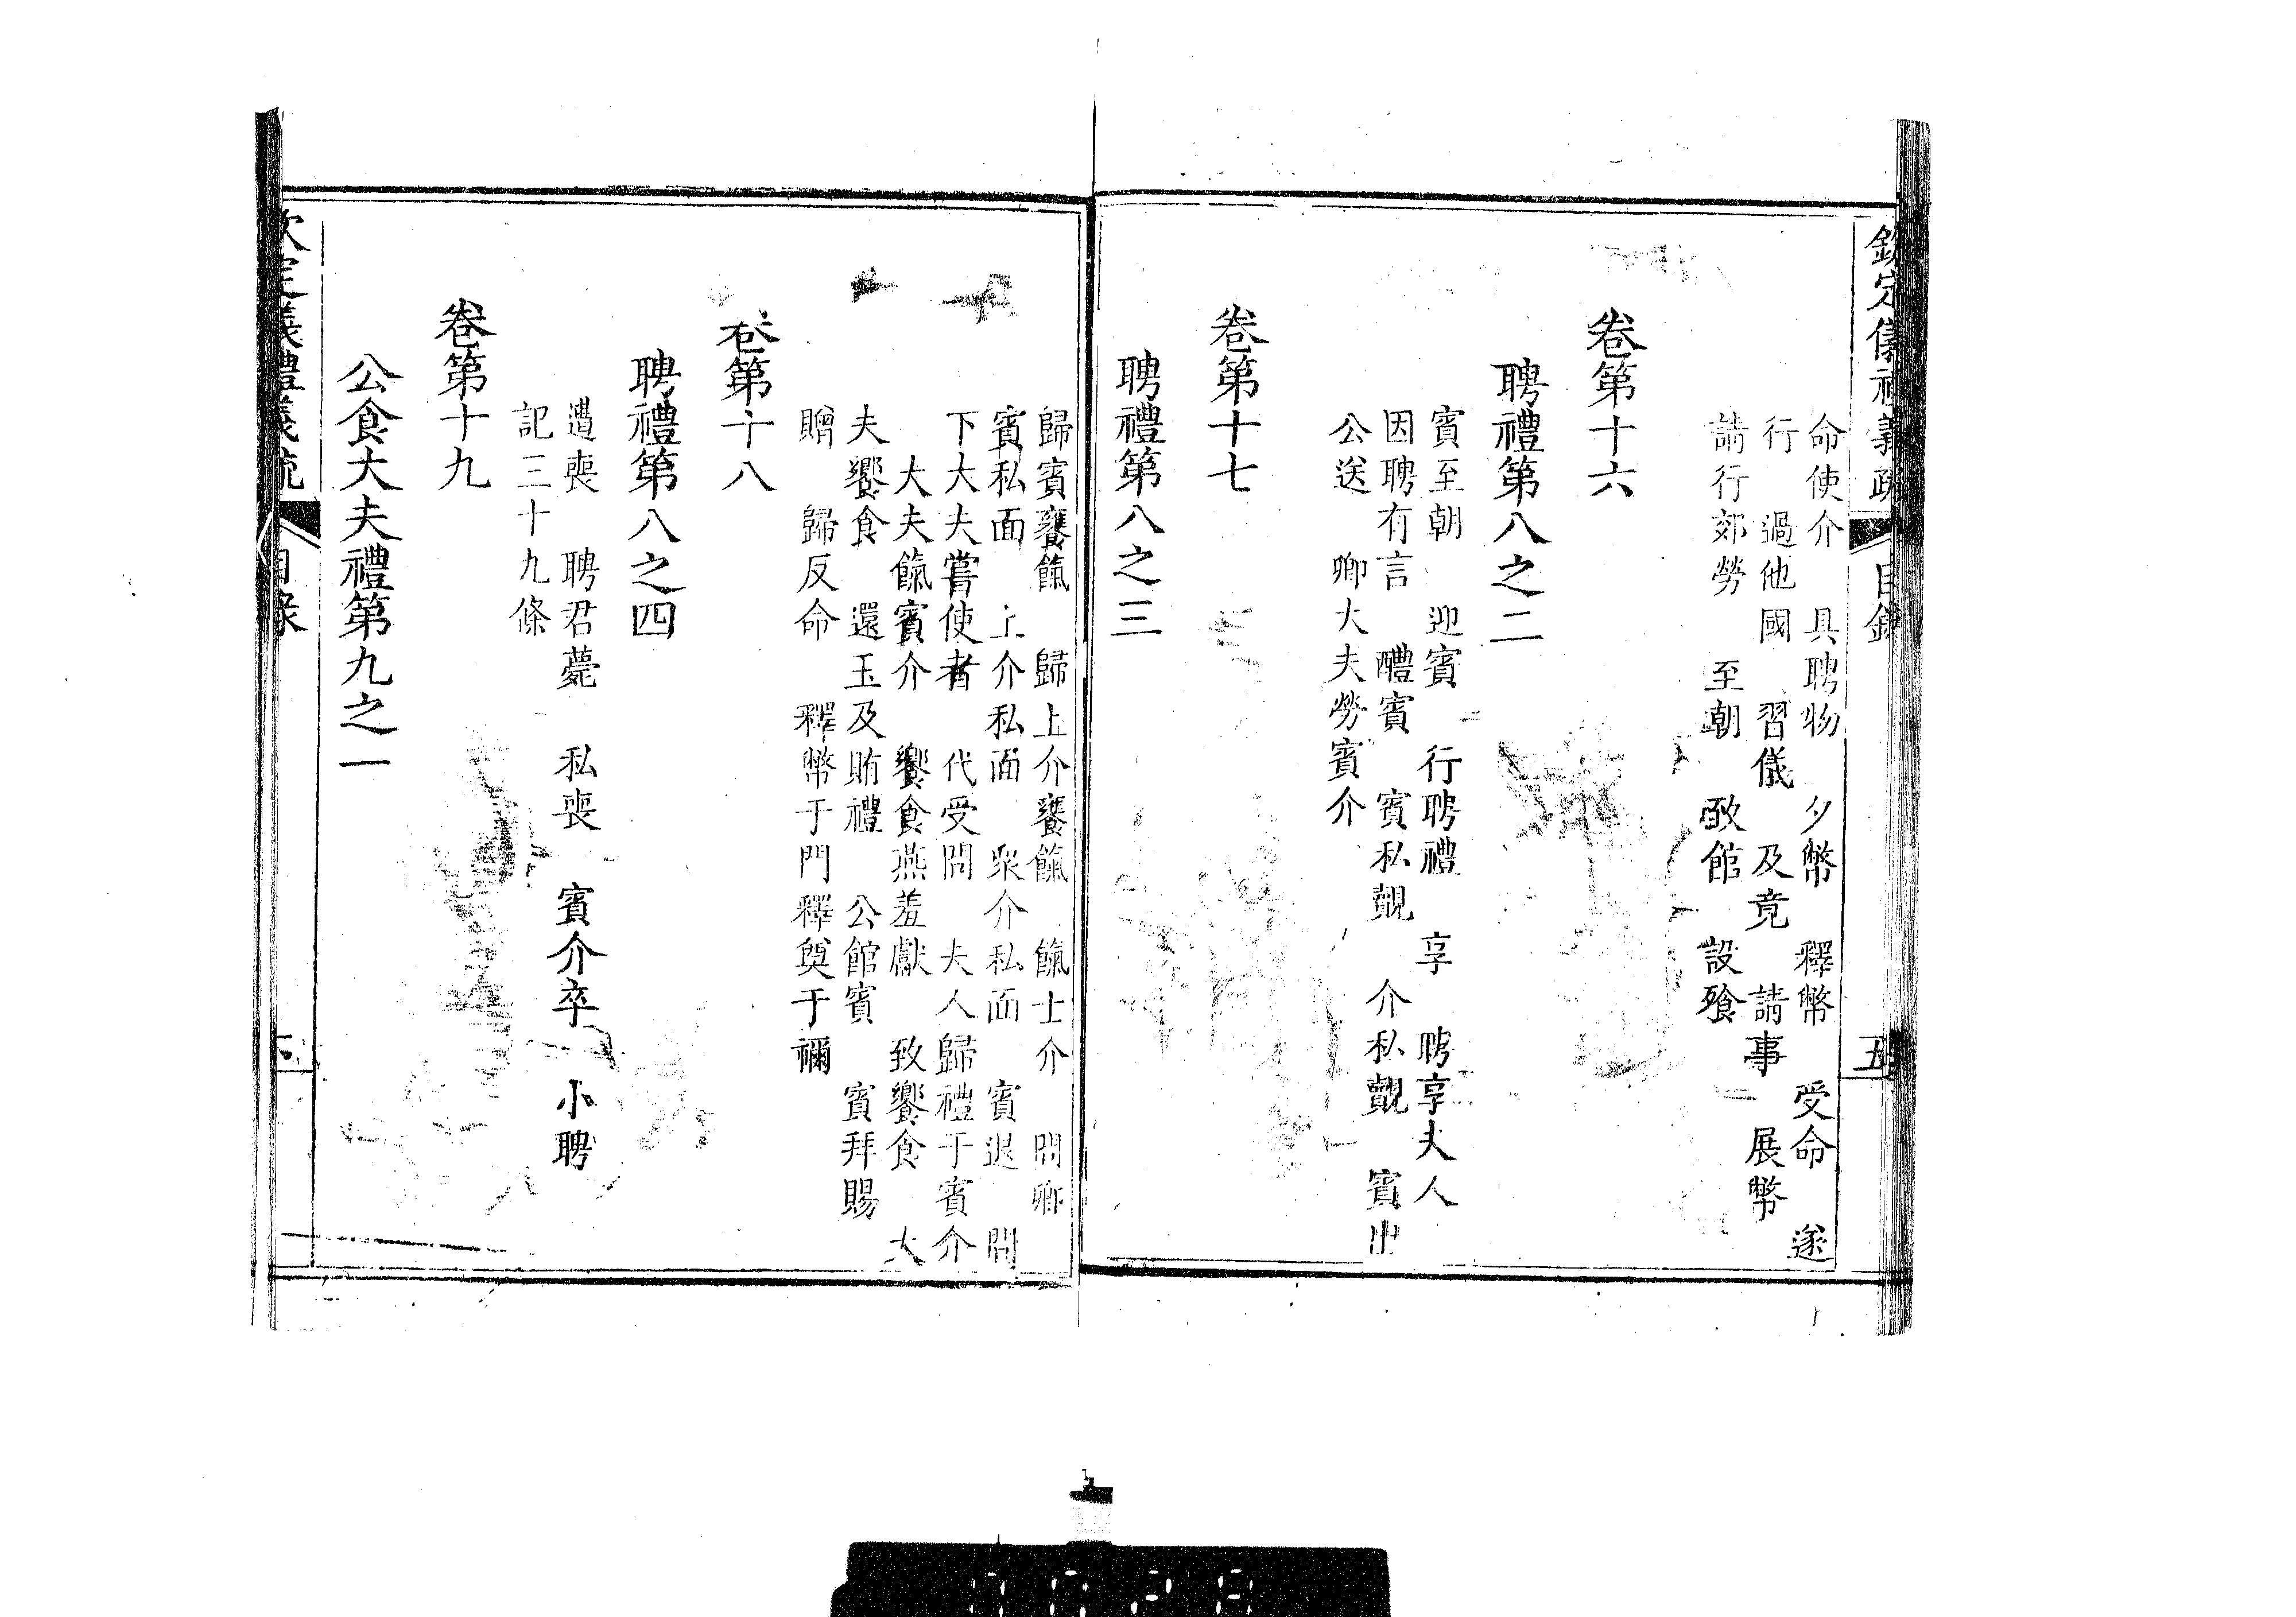 欽定儀禮義疏 目錄 五
命使介 具聘物 夕幣 釋幣 受命 遂
行 過他國 習儀 及竟 請事 展幣
請行郊勞 至朝 致館 設飱
卷第十六
聘禮第八之二
賓至朝 迎賓 行聘禮 享 聘享夫人
因聘有言 醴賓 賓私覿 介私覿 賓出
公送 卿大夫勞賓介
卷第十七
聘禮第八之三
歸賓饔餼 歸上介饔餼 餼士介 問卿
賓私面 上介私面 衆介私面 賓退 問
下大夫嘗使者 代受問 夫人歸禮于賓介
大夫餼賓介 饗食燕羞獻 致饗食 大
夫饗食 還玉及賄禮 公館賓 賓拜賜
贈 歸反命 釋幣于門釋奠于禰
卷第十八
聘禮第八之四
遭喪 聘君薨 私喪 賓介卒 小聘
記三十九條
卷第十九
公食大夫禮第九之一
欽定儀禮義疏 目錄